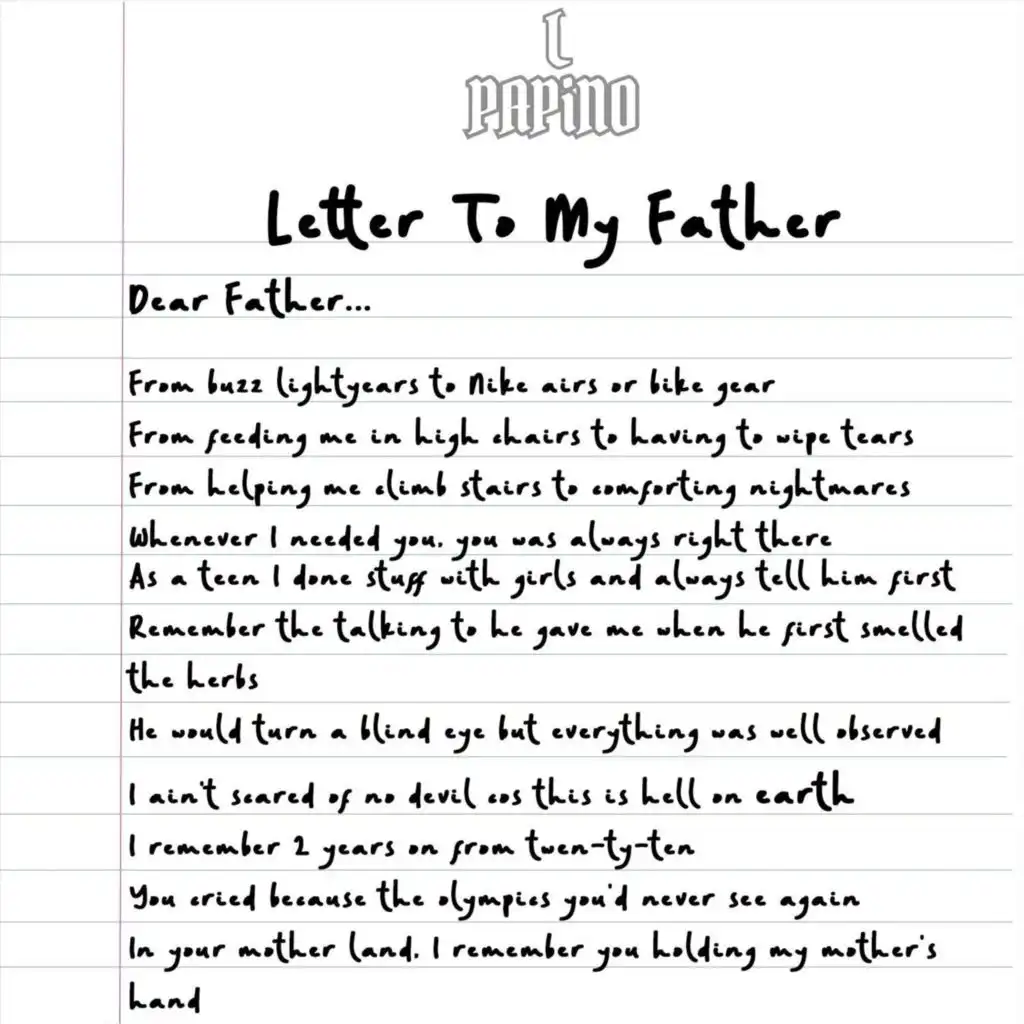 L
PAPiNO
Letter To My Father
Dear Father...
From buzz lightyears to Nike airs or bike gear
From feeding me in high chairs to having to wipe tears
From helping me climb stairs to comforting nightmares
Whenever I needed you, you was always right there
As a teen I done stuff with girls and always tell him first
Remember the talking to he gave me when he first smelled
the herbs
He would turn a blind eye but everything was well observed
I ain't scared of no devil cos this is hell on earth
I remember 2 years on from twen-ty-ten
You cried because the olympics you'd never see again
In your mother land, I remember you holding my mother's
hand